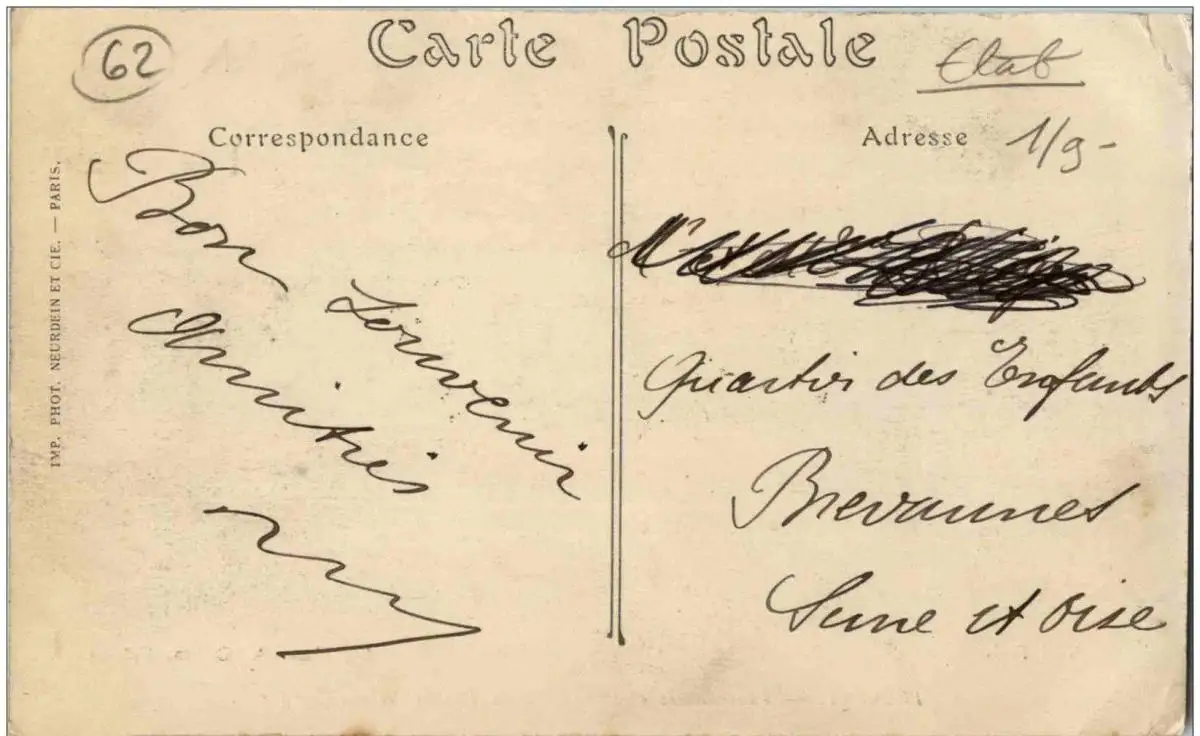 62
Carte Postale
Etab
Correspondance
Adresse 1/9-
IMP. PHOT. NEURDEIN ET CIE. — PARIS.
Bon Souvenir
Amitiés
Quartier des Enfants
Brevannes
Seine et Oise